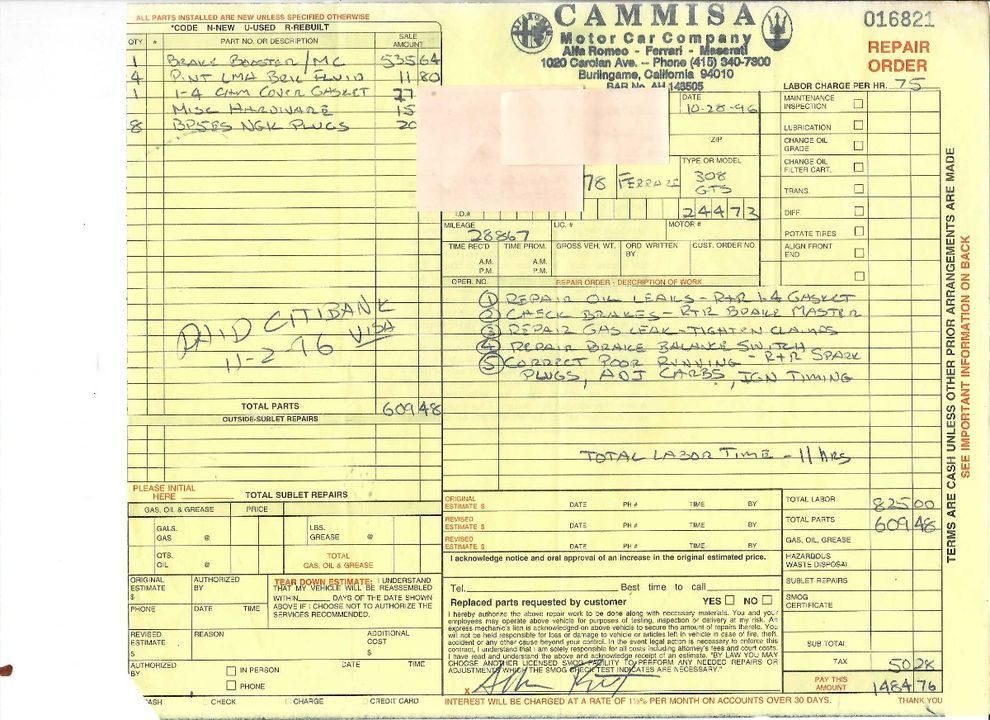 ALL PARTS INSTALLED ARE NEW UNLESS SPECIFIED OTHERWISE
*CODE N-NEW U-USED R-REBUILT
QTY * PART NO. OR DESCRIPTION SALE AMOUNT
1 BRAKE BOOSTER/MC 535 64
4 PINT LMA BRK FLUID 11 80
1 1-4 CAM COVER GASKET 27
MISC HARDWARE 15
8 BP5ES NGK PLUGS 20
PAID CITIBANK
VISA
11-2-96
TOTAL PARTS 609 48
OUTSIDE-SUBLET REPAIRS
PLEASE INITIAL HERE
TOTAL SUBLET REPAIRS
GAS, OIL & GREASE PRICE
GALS. GAS @
LBS. GREASE @
QTS. OIL @
TOTAL GAS, OIL & GREASE
ORIGINAL ESTIMATE $
AUTHORIZED BY
PHONE DATE TIME
TEAR DOWN ESTIMATE: I UNDERSTAND
THAT MY VEHICLE WILL BE REASSEMBLED
WITHIN DAYS OF THE DATE SHOWN
ABOVE IF I CHOOSE NOT TO AUTHORIZE THE
SERVICES RECOMMENDED.
REVISED ESTIMATE $
REASON
ADDITIONAL COST $
AUTHORIZED BY
IN PERSON
PHONE
DATE TIME
CASH CHECK CHARGE CREDIT CARD
CAMMISA
Motor Car Company
Alfa Romeo - Ferrari - Maserati
1020 Carolan Ave. -- Phone (415) 340-7300
Burlingame, California 94010
BAR No. AH 143505
016821
REPAIR
ORDER
LABOR CHARGE PER HR. 75
DATE
10-28-96
ZIP
TYPE OR MODEL
78 FERRARI 308
GTS
I.D.# 24473
MILEAGE LIC. # MOTOR#
28867
TIME REC'D TIME PROM. GROSS VEH. WT. ORD WRITTEN BY CUST. ORDER NO.
A.M. A.M.
P.M. P.M.
OPER. NO. REPAIR ORDER - DESCRIPTION OF WORK
① REPAIR OIL LEAKS - R+R 1-4 GASKET
② CHECK BRAKES - R+R BRAKE MASTER
③ REPAIR GAS LEAK - TIGHTEN CLAMPS
④ REPAIR BRAKE BALANCE SWITCH
⑤ CORRECT POOR RUNNING - R+R SPARK
PLUGS, ADJ CARBS, IGN TIMING
TOTAL LABOR TIME - 11 HRS
MAINTENANCE INSPECTION
LUBRICATION
CHANGE OIL GRADE
CHANGE OIL FILTER CART.
TRANS.
DIFF.
ROTATE TIRES
ALIGN FRONT END
ORIGINAL ESTIMATE $ DATE PH # TIME BY
REVISED ESTIMATE $ DATE PH # TIME BY
REVISED ESTIMATE $ DATE PH # TIME BY
I acknowledge notice and oral approval of an increase in the original estimated price.
Tel. Best time to call
Replaced parts requested by customer YES NO
I hereby authorize the above repair work to be done along with necessary materials. You and your
employees may operate above vehicle for purposes of testing, inspection or delivery at my risk. An
express mechanic's lien is acknowledged on above vehicle to secure the amount of repairs thereto. You
will not be held responsible for loss or damage to vehicle or articles left in vehicle in case of fire, theft,
accident or any other cause beyond your control. In the event legal action is necessary to enforce this
contract, I understand that I am solely responsible for all costs including attorney's fees and court costs.
I have read and understand the above and acknowledge receipt of an estimate. "BY LAW YOU MAY
CHOOSE ANOTHER LICENSED SMOG FACILITY TO PERFORM ANY NEEDED REPAIRS OR
ADJUSTMENTS WHICH THE SMOG CHECK TEST INDICATES ARE NECESSARY."
X
INTEREST WILL BE CHARGED AT A RATE OF 1½% PER MONTH ON ACCOUNTS OVER 30 DAYS. THANK YOU
TOTAL LABOR 825 00
TOTAL PARTS 609 48
GAS, OIL, GREASE
HAZARDOUS WASTE DISPOSAL
SUBLET REPAIRS
SMOG CERTIFICATE
SUB TOTAL
TAX 50 28
PAY THIS AMOUNT 1484 76
TERMS ARE CASH UNLESS OTHER PRIOR ARRANGEMENTS ARE MADE
SEE IMPORTANT INFORMATION ON BACK